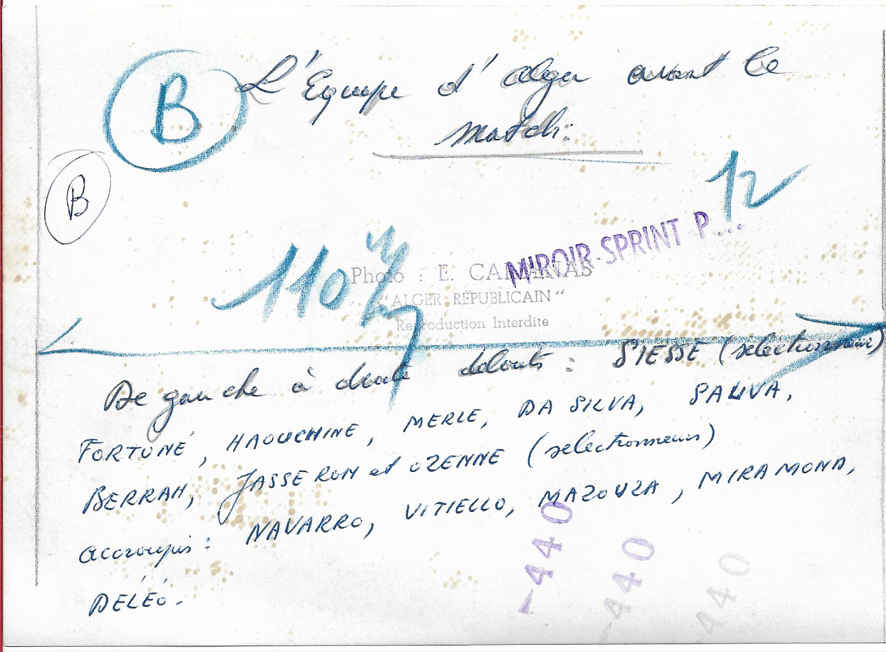 B
L'Équipe d'alger avant le
match:
B
12
MIROIR-SPRINT P....
110
Photo : E.
"ALGER RÉPUBLICAIN"
Reproduction Interdite
De gauche à droite debouts : SIESSE (selectionneur)
FORTUNÉ, HAOUCHINE, MERLE, DA SILVA, SALIVA,
BERRAH, JASSERON et OZENNE (selectionneurs)
accroupis : NAVARRO, VITIELLO, MAZOUZA, MIRAMONA,
DÉLÉO.
-440
-440
-440